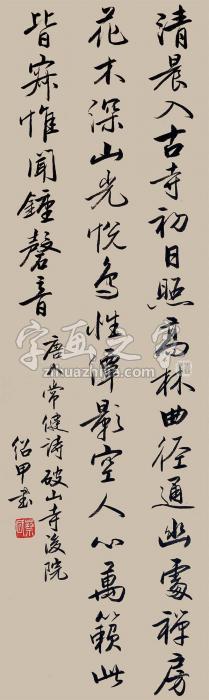 清晨入古寺初日照高林曲径通幽處禪房
花木深山光悦鸟性潭影空人心萬籁此
皆寂惟闻鍾磬音
唐常健诗破山寺後院
绍甲书
字画之家
zihuazhijia.com